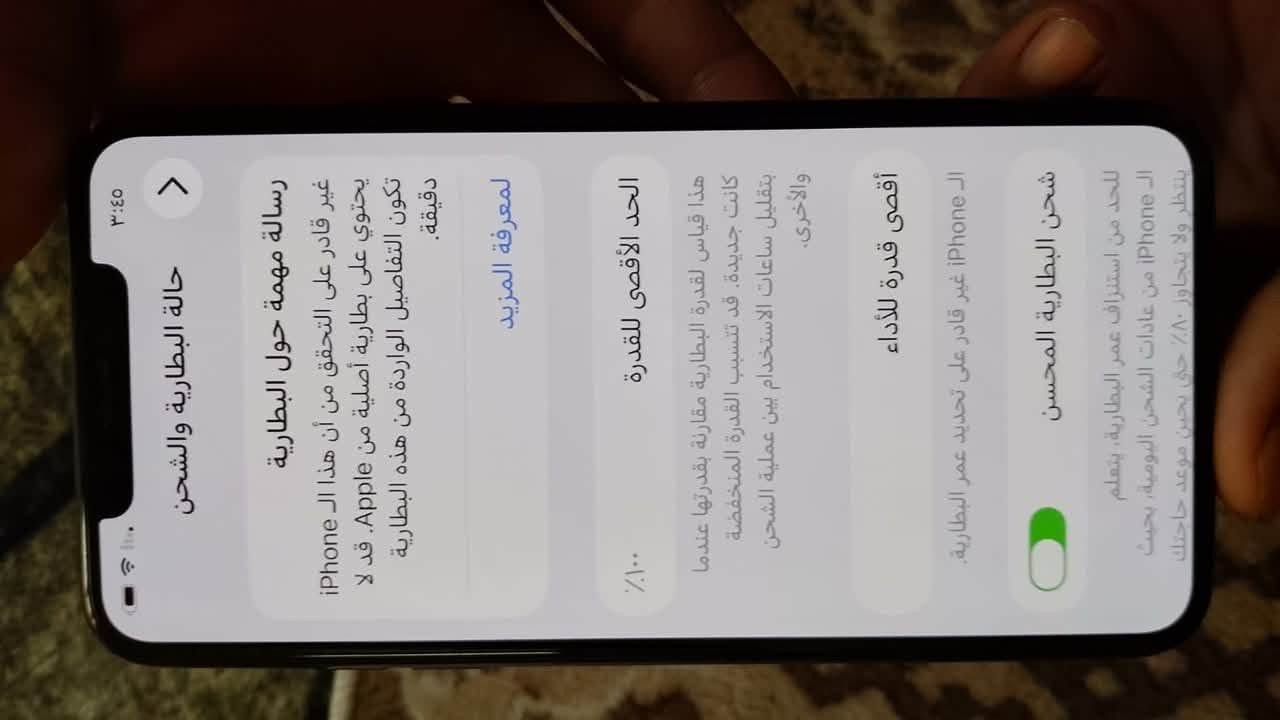 ٣:٤٥
حالة البطارية والشحن
رسالة مهمة حول البطارية
غير قادر على التحقق من أن هذا الـ iPhone
يحتوي على بطارية أصلية من Apple. قد لا
تكون التفاصيل الواردة من هذه البطارية
دقيقة.
لمعرفة المزيد
الحد الأقصى للقدرة
١٠٠٪
هذا قياس لقدرة البطارية مقارنة بقدرتها عندما
كانت جديدة. قد تتسبب القدرة المنخفضة
بتقليل ساعات الاستخدام بين عملية الشحن
والأخرى.
أقصى قدرة للأداء
الـ iPhone غير قادر على تحديد عمر البطارية.
شحن البطارية المحسن
للحد من استنزاف عمر البطارية، يتعلم
الـ iPhone من عادات الشحن اليومية، بحيث
ينتظر ولا يتجاوز ٨٠٪ حتى يحين موعد حاجتك